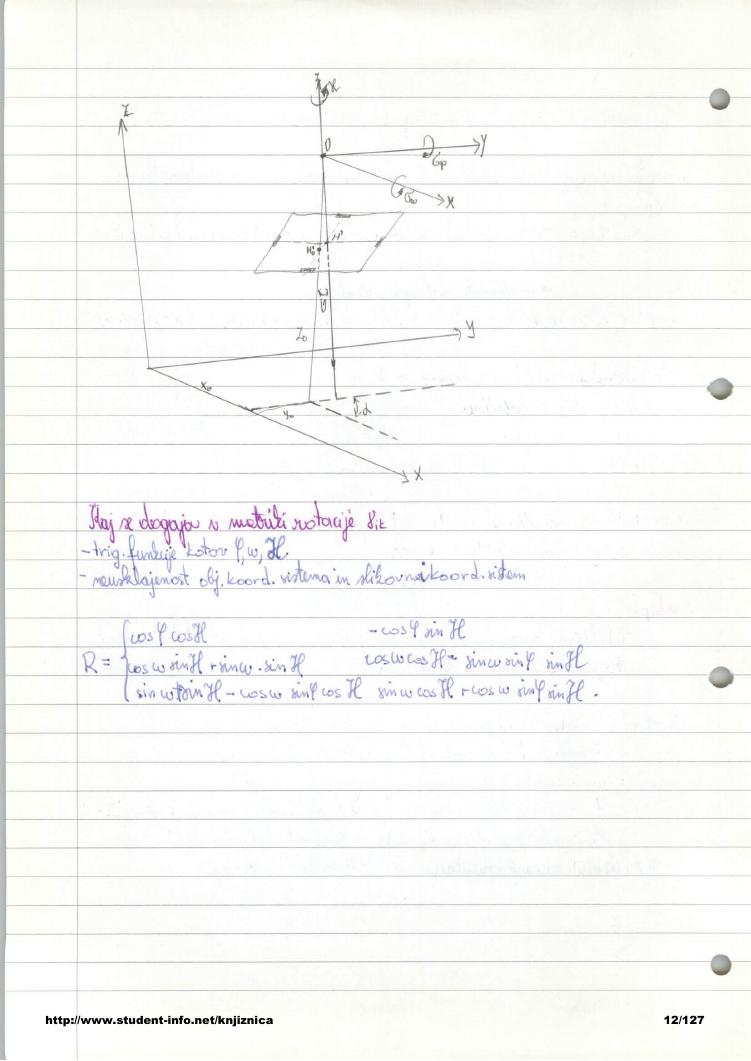 Z
ϰ
Z
O
Y
φ
ω
X
H'
c
Z₀
Y
X₀
Y₀
α
X
Kaj se dogaja v matriki rotacije rik
- trig. funkcije kotov φ, ω, ϰ
- neusklajenost obj. koord. sistema in slikovni koord. sistem
cosφ cosϰ - cosφ sinϰ
R = cosω sinϰ + sinω . sinϰ cosω cosϰ - sinω sinφ sinϰ
sinω sinϰ - cosω sinφ cosϰ sinω cosϰ + cosω sinφ sinϰ .
http://www.student-info.net/knjiznica 12/127